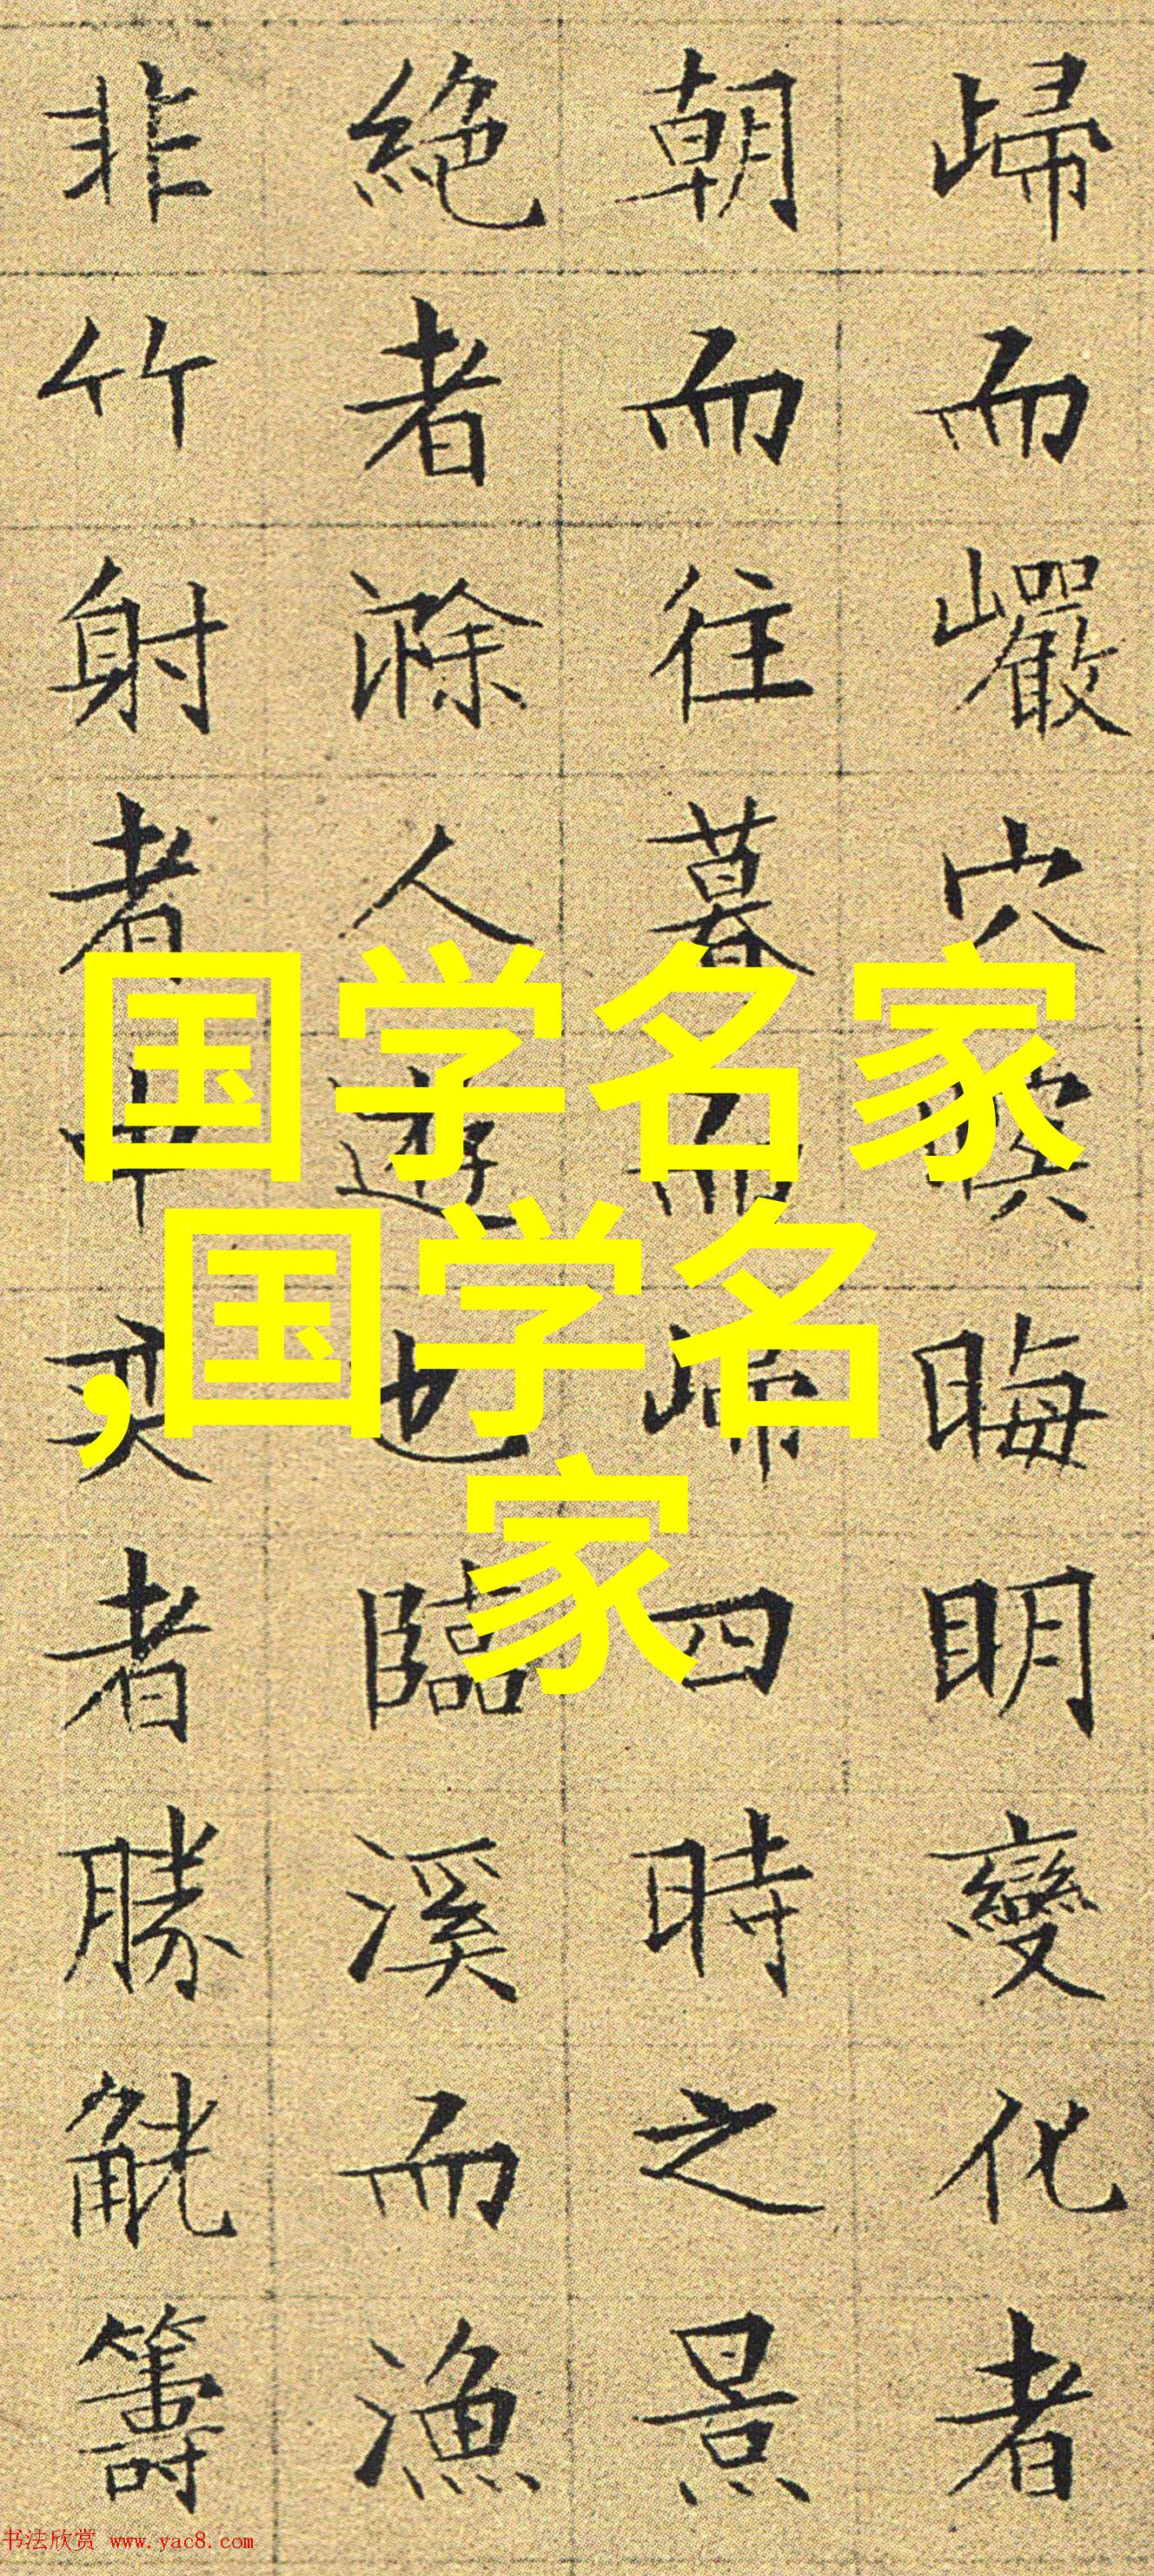 歸而巗穴暝晦明變化者
朝而往暮而歸四時之景
絶者滁人遊也臨溪而漁
非竹射者中奕者勝觥籌
国学名家
,国学名
家
书法欣赏 www.yac8.com